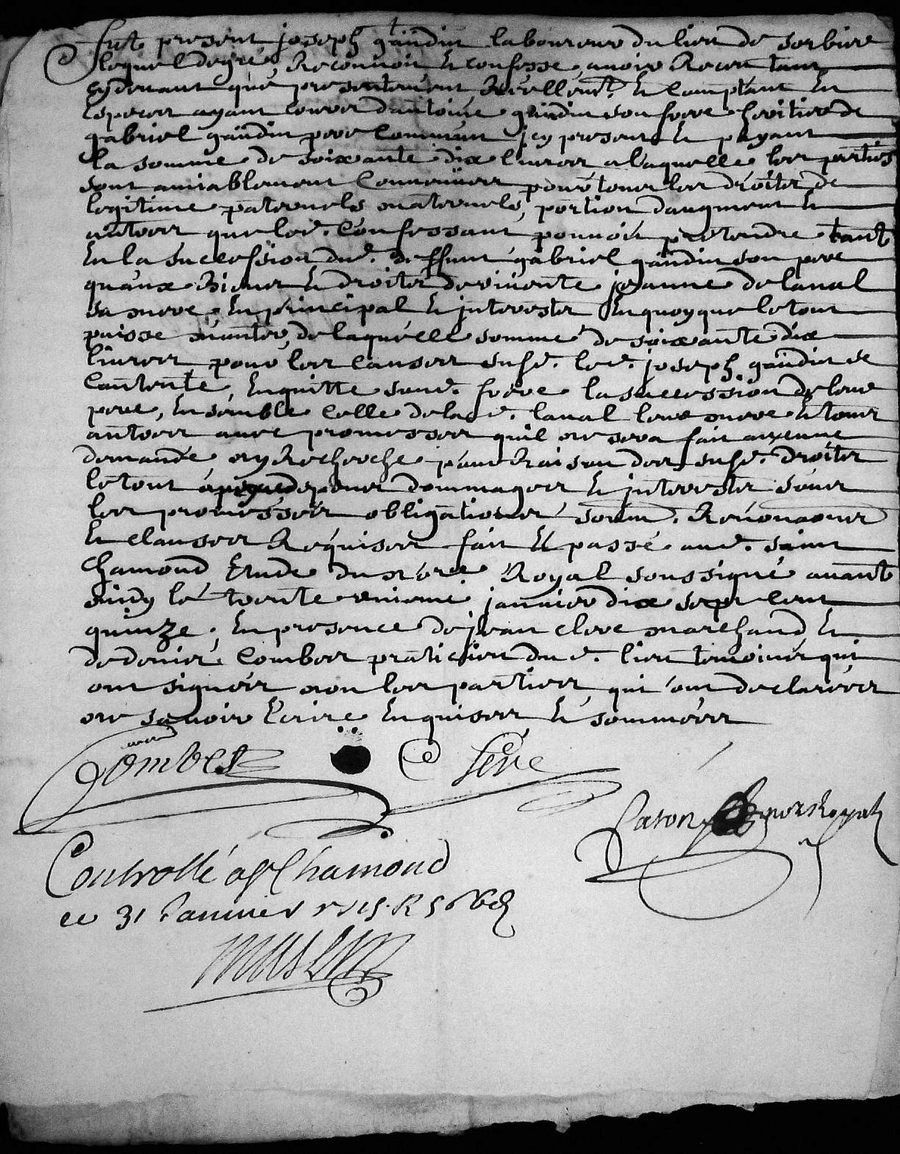 fut present joseph gaudin laboureur du lieu de sorbiere
lequel de gré Reconnoit et confesse avoir Receu tant
cydevant que presentement Réellemt. et comptant en
Especes ayant cours d'antoine gaudin son frere heritier de
gabriel gaudin pere commun icy present et payant
la somme de soixante dix livres a laquelle les parties
sont amiablement convenües pour tous les droits de
legitime paternels maternels, portion d'augment et
autres que led. confessant pouvoit pretendre tant
En la succession dud. deffunt gabriel gaudin son pere
qu'aux Biens et droits de vivante jeanne de laval
sa mere, En principal et interests En quoy que le tout
puisse monter, de laquelle somme de soixante dix
livres pour les causes susd. led. joseph gaudin se
contente, En quitte sond. frere la succession de leur
pere, Ensemble celle de lad. laval leur mere et tous
autres avec promesses qu'il ne sera fait aucune
demande ny Recherche pour Raison des susd. droits
le tout a peyne de tous dommages et interests sous
les promesses obligations soum. Renonciaons
et clauses Requises fait et passé aud. saint
chamond Etude du nore Royal soussigné avant
midy le trente unieme janvier dix sept cent
quinze, En presence de jean cleve marchand et
de denis combes praticien dud. lieu temoins qui
ont signés non les parties qui ont declarées
ne savoir Ecrire Enquises et sommées
Combes Seve
nore Royal
Controllé a St Chamond
ce 31 Janvier 1715 R